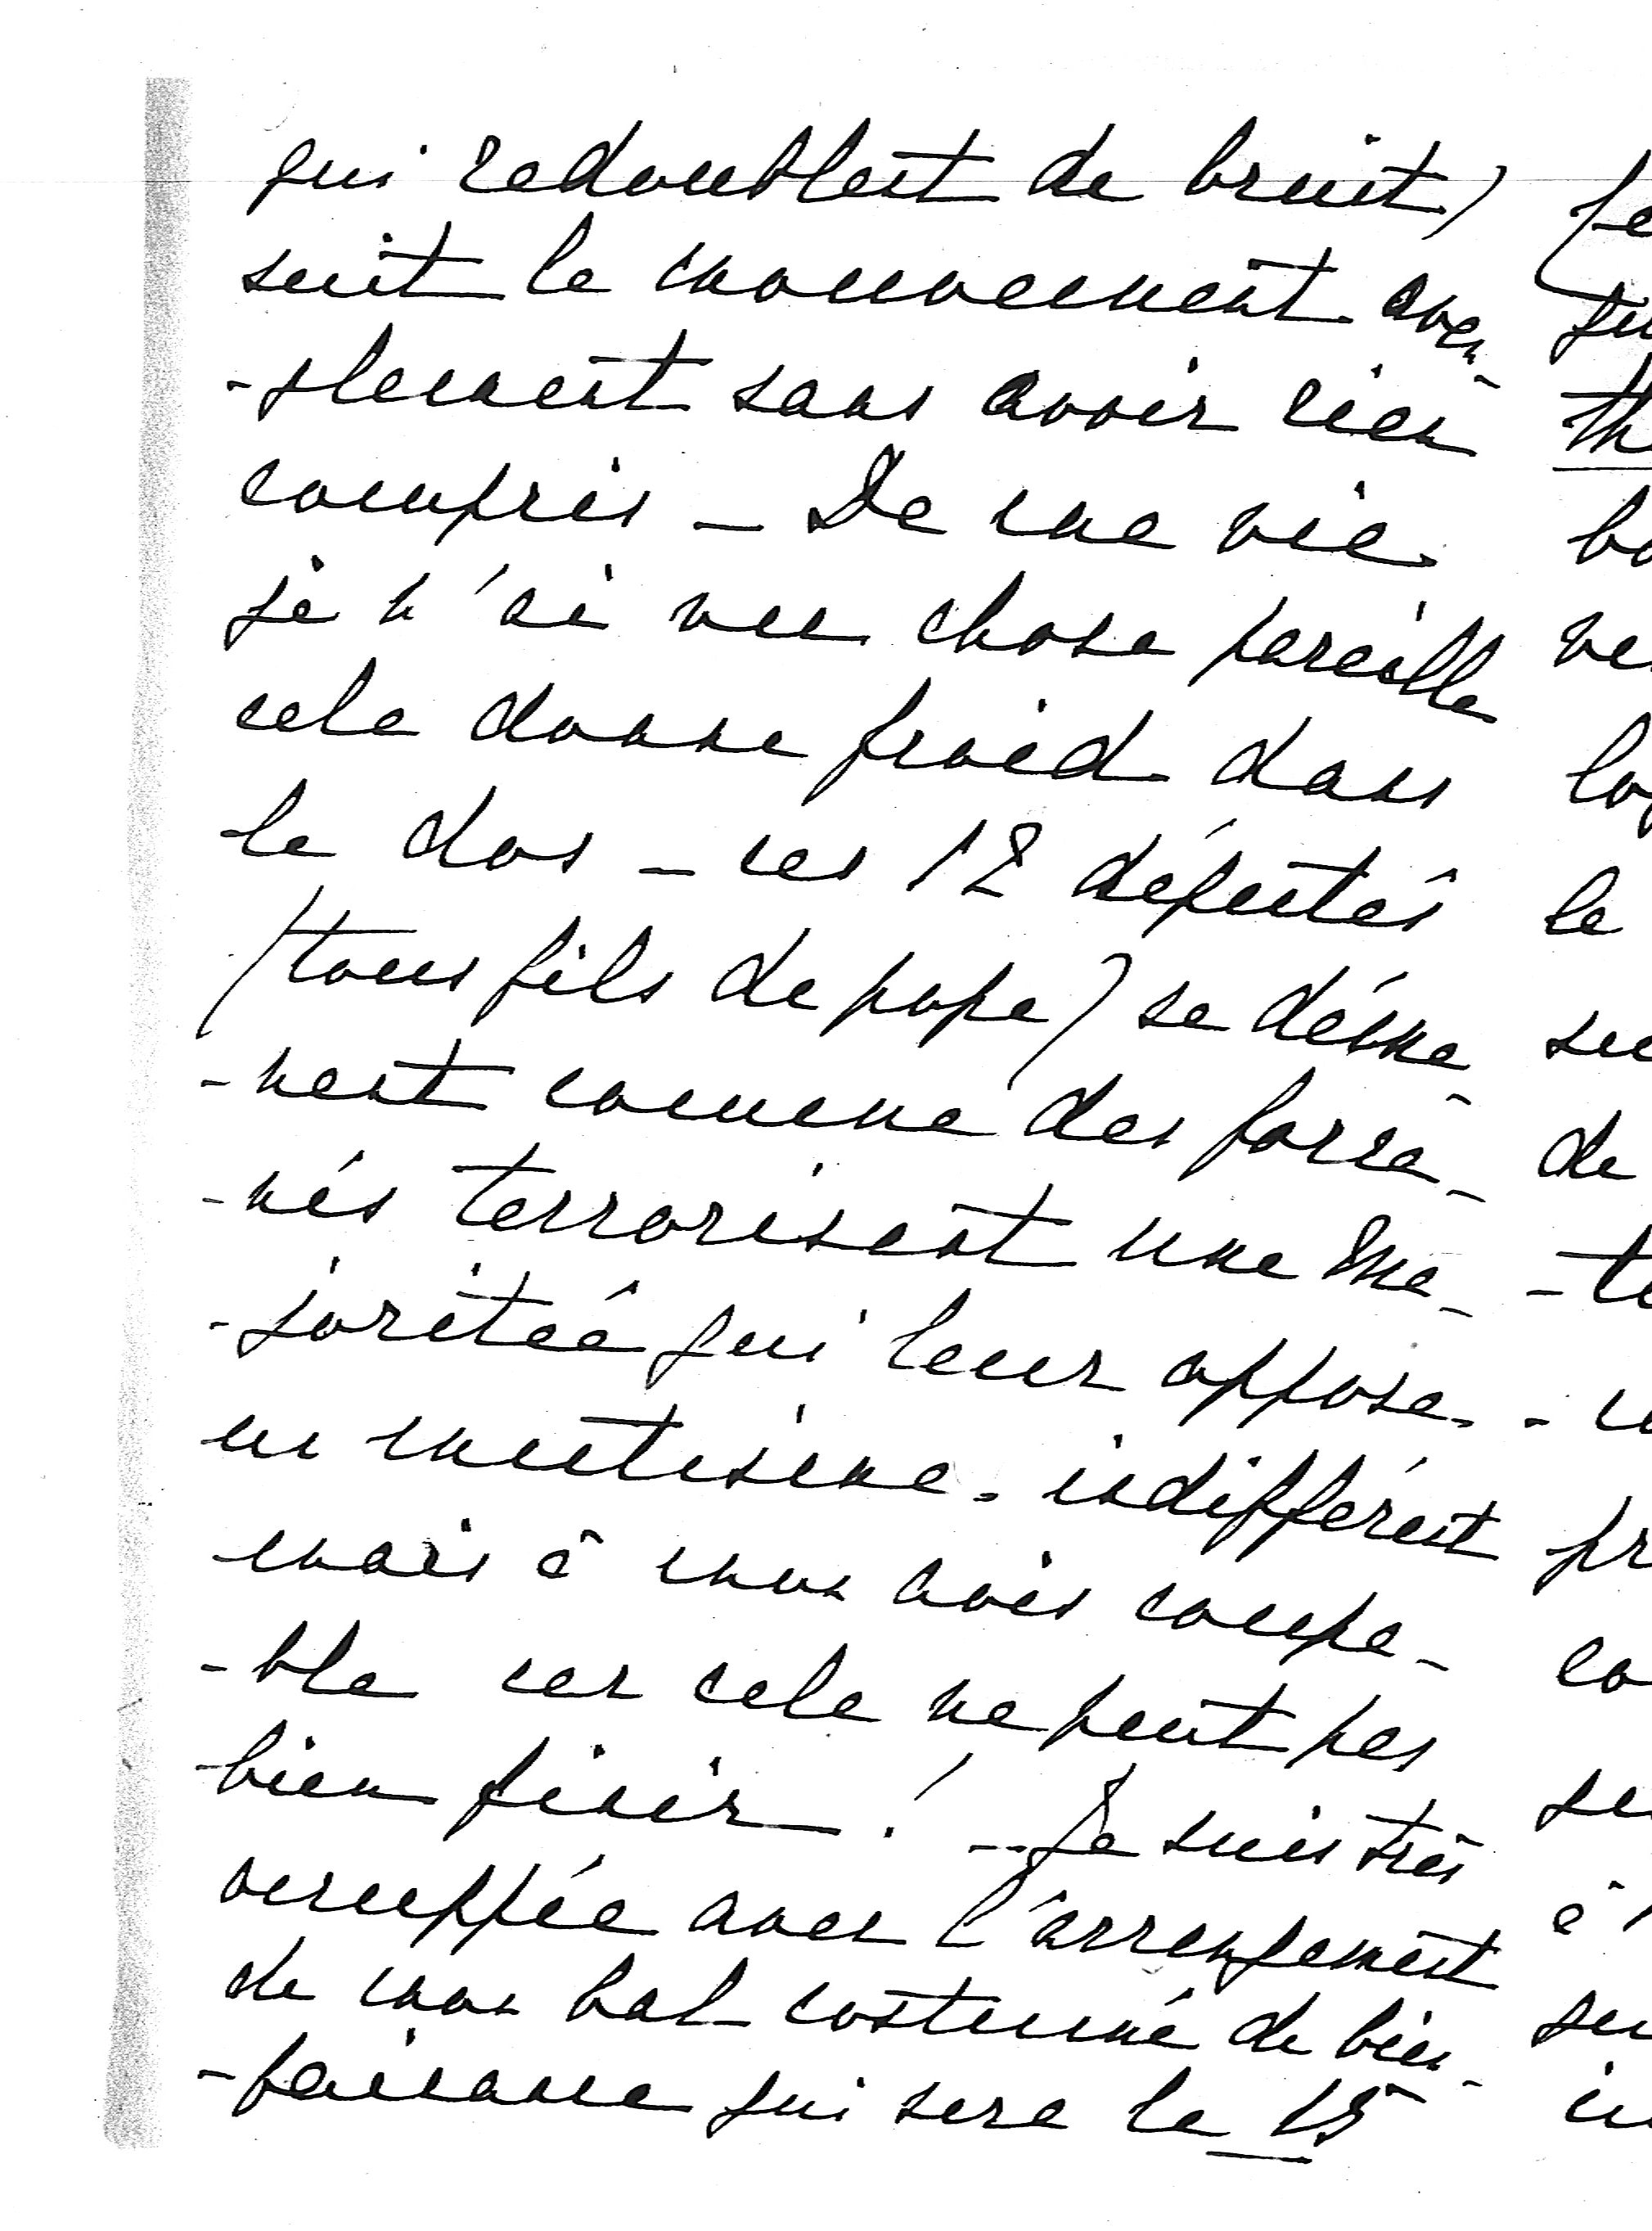 qui redoublait de bruit)
suit le mouvement aveu-
-glement sans avoir rien
compris – De ma vie
je n'ai vu chose pareille
cela donne froid dans
le dos – ces 12 députés
(tous fils de pope) se démè-
-nent comme des force-
-nés terrorisent une ma-
-joritée qui leur oppose
un mutisme indifférent
mais à mon avis coupa-
-ble car cela ne peut pas
bien finir! – Je suis très
occuppée avec l'arrangement
de mon bal costumé de bien-
-faisance qui sera le 15